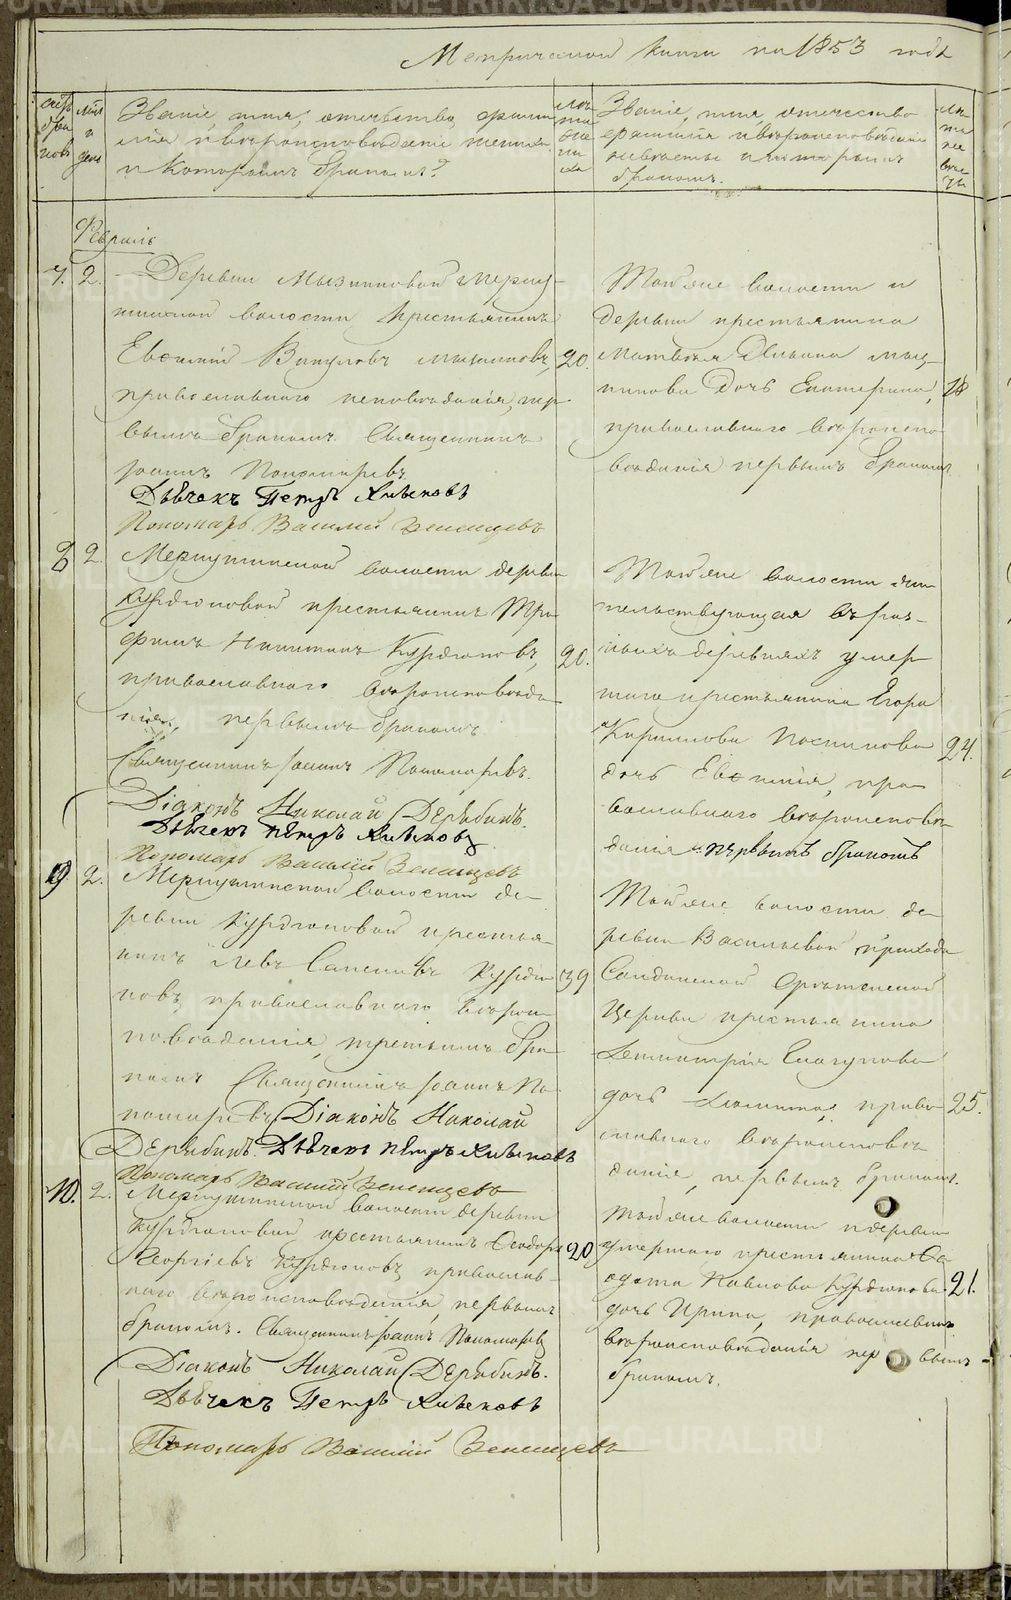 Метрической книги на 1853 годъ
Счетъ браковъ
Мѣсяцъ и день
Званіе, имя, отчество, фами-
лія и вѣроисповѣданіе жениха
и которымъ бракомъ?
Лѣта жениха
Званіе, имя, отечество
фамилія и вѣроисповѣданіе
невѣсты и которымъ
бракомъ.
Лѣта невѣсты
Февраль
7. 2. Деревни Мызниковой Мерку-
шинской волости крестьянинъ
Евсимій Викуловъ Мызниковъ, 20.
православнаго исповѣданія, пер-
вымъ бракомъ. Священникъ
Іоаннъ Пономаревъ
Дьячекъ Петръ Хлыновъ
Пономарь Василій Зеленцевъ
Той же волости и
деревни крестьянина
Матвѣя Мыз-
никова дочь Екатерина, 18
православнаго вѣроиспо-
вѣданія первымъ бракомъ
8 2. Меркушинской волости деревни
Курдюковой крестьянинъ Тро-
фимъ Никитинъ Курдюковъ, 20.
православнаго вѣроисповѣда-
нія, первымъ бракомъ
Священникъ Іоаннъ Пономаревъ.
Діаконъ Николай Дерябинъ.
Дьячекъ Петръ Хлыновъ
Пономарь Василій Зеленцевъ
Той же волости жи-
тельствующая въ раз-
ныхъ деревняхъ умер-
шаго крестьянина Егора
Кирилова Поспилова 24.
дочь Евѳимія, пра-
вославнаго вѣроисповѣ-
данія первымъ бракомъ
9 2. Меркушинской волости де-
ревни Курдюковой крестья-
нинъ Левъ Савельевъ Курдю- 39
ковъ, православнаго вѣроис-
повѣданія, третьимъ бра-
комъ Священникъ Іоаннъ По-
номаревъ Діаконъ Николай
Дерябинъ. Дьячекъ Петръ Хлыновъ
Пономарь Василій Зеленцевъ
Той же волости де-
ревни Васильевой прихода
Срѣтенской
Церкви крестьянина
Димитрія Глазунова
дочь право- 25.
славнаго вѣроисповѣ-
данія, первымъ бракомъ.
10. 2. Меркушинской волости деревни
Курдюковой крестьянинъ Ѳеодоръ 20
Георгіевъ Курдюковъ, православ-
наго вѣроисповѣданія, первымъ
бракомъ. Священникъ Іоаннъ Пономаревъ
Діаконъ Николай Дерябинъ.
Дьячекъ Петръ Хлыновъ
Пономарь Василій Зеленцевъ
Той же волости и деревни
умершаго крестьянина Ѳе-
одота Павлова Курдюкова 21.
дочь Ирина, православнаго
вѣроисповѣданія пер вымъ
бракомъ.
METRIKI.GASO-URAL.RU